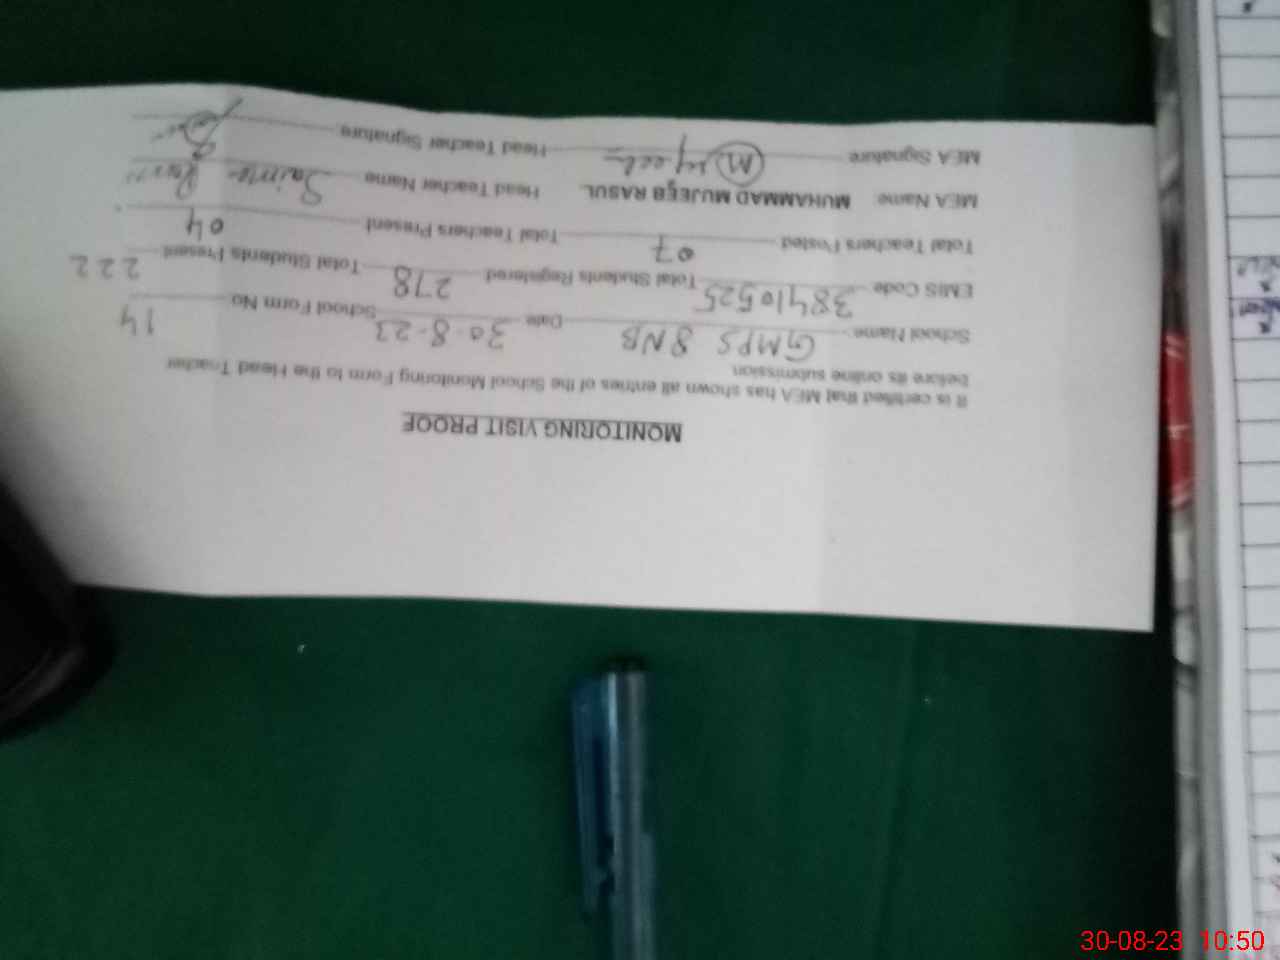 MONITORING VISIT PROOF
It is certified that MEA has shown all entries of the School Monitoring Form to the Head Teacher
before its online submission
School Name: GMPS 8NB Date 30-8-23 School Form No 14
EMIS Code 38410525 Total Students Registered 278 Total Students Present 222
Total Teachers Posted 07 Total Teachers Present 04
MEA Name: MUHAMMAD MUJEEB RASUL Head Teacher Name Saima
MEA Signature Head Teacher Signature
30-08-23 10:50